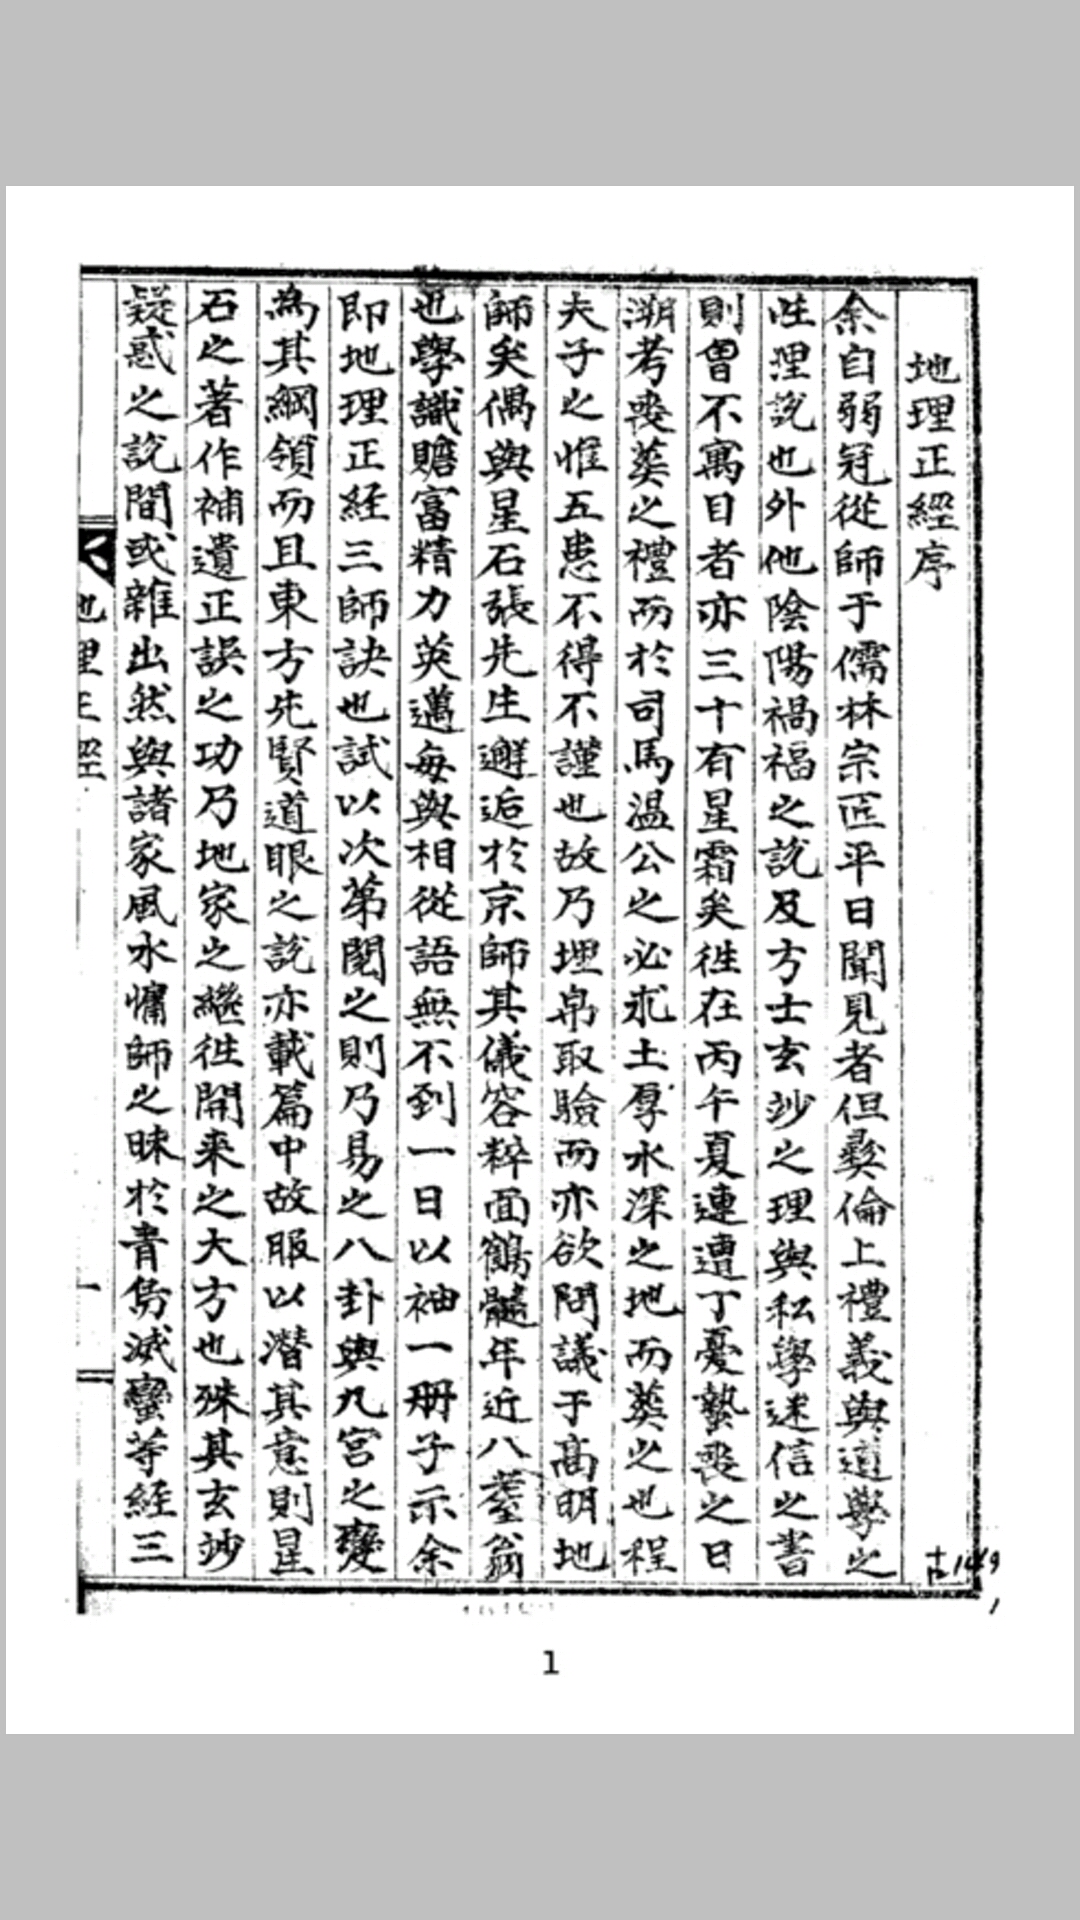 地理正經序
余自弱冠從師于儒林宗匠平日聞見者但彜倫上禮義與道學之
性理說也外他陰陽禍福之說及方士玄妙之理與私學迷信之書
則曾不寓目者亦三十有星霜矣徃在丙午夏連遭丁憂執喪之日
溯考喪葬之禮而於司馬温公之必求土厚水深之地而葬之也程
夫子之惟五患不得不謹也故乃埋帛取驗而亦欲問議于高明地
師矣偶與星石張先生邂逅於京師其儀容粹面鶴髓年近八耋翁
也學識贍富精力英邁每與相從語無不到一日以袖一册子示余
即地理正経三師訣也試以次第閱之則乃易之八卦與九宮之變
為其綱領而且東方先賢道眼之說亦載篇中故服以潛其意則星
石之著作補遺正誤之功乃地家之繼徃開来之大方也殊其玄妙
疑惑之說間或雜出然與諸家風水慵師之昧於青烏滅蠻等経三
地理正經
一
古149
1
1